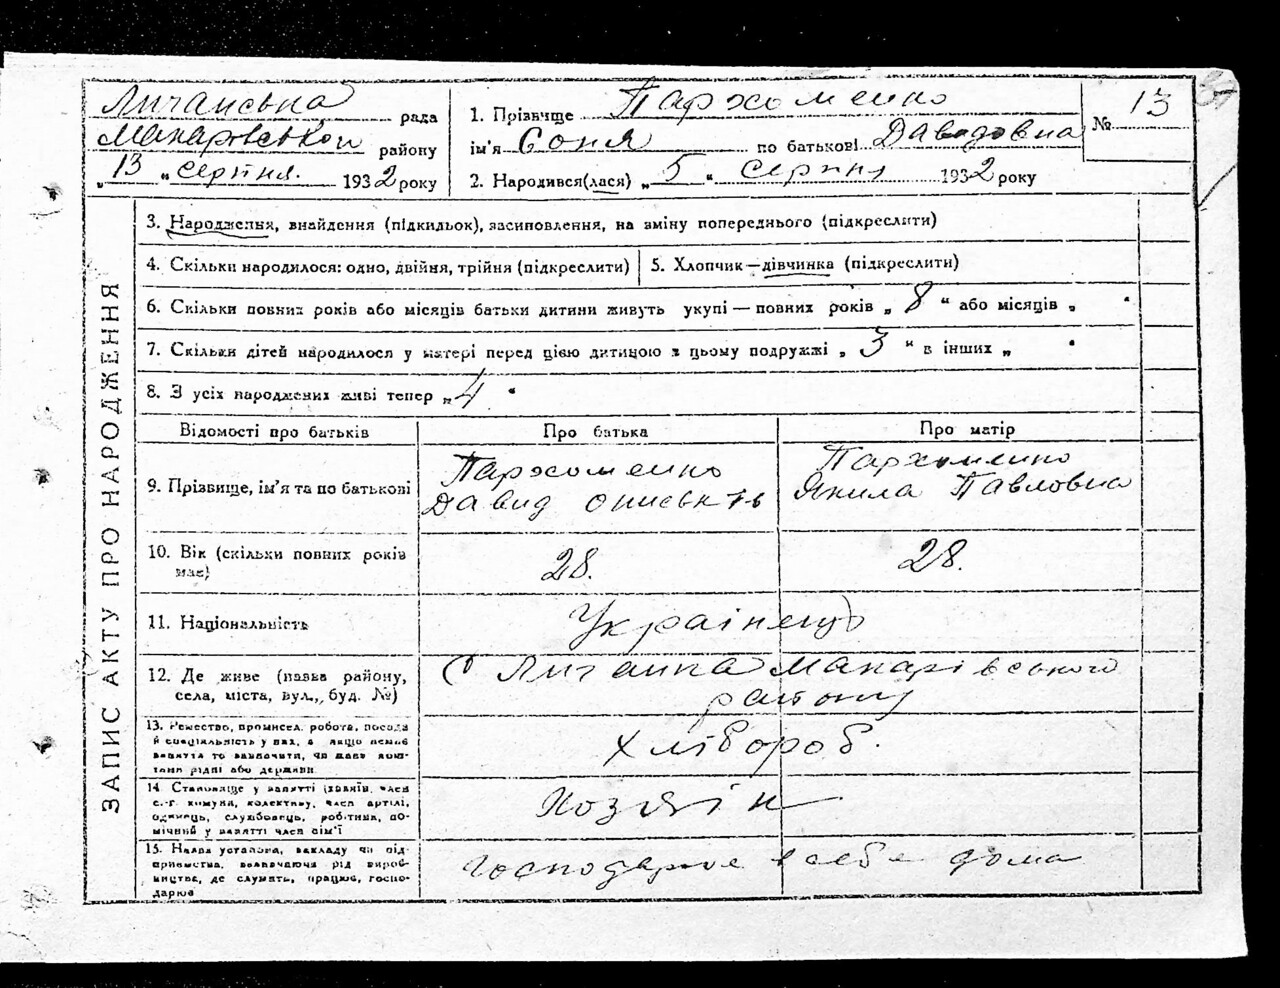 Личанська рада
Макарівської району
„13 “ серпня 1932 року
1. Прізвище Пархоменко
ім'я Соня по батькові Давидовна
2. Народився(лася) „ 5 “ серпня 1932 року
№ 13
ЗАПИС АКТУ ПРО НАРОДЖЕННЯ
3. Народження, знайдення (підкидьок), засиновлення, на зміну попереднього (підкреслити)
4. Скільки народилося: одно, двійня, трійня (підкреслити)
5. Хлопчик—дівчинка (підкреслити)
6. Скільки повних років або місяців батьки дитини живуть укупі — повних років „ 8 “ або місяців „ “
7. Скільки дітей народилося у матері перед цією дитиною з цьому подружжі „ 3 “ в інших „ “
8. З усіх народжених живі тепер „ 4 “
Відомості про батьків
Про батька
Про матір
9. Прізвище, ім'я та по батькові
Пархоменко
Давид
Пархоменко
Якила Павловна
10. Вік (скільки повних років
має)
28.
28.
11. Національність
Українець
12. Де живе (назва району,
села, міста, вул., буд. №)
С Личанка Макарівського
району
13. Ремество, промисел, робота, посада
й спеціяльність у них, а якщо немає
заняття то зазначити, чи дає кош-
тами рідні або держави
Хлібороб.
14. Становище у занятті (хазяїн, член
с.-г. комуни, колективу, член артілі,
одинець, службовець, робітник, по-
мічний у занятті член сім'ї
Хозяїн
15. Назва установи, закладу чи під-
приємства, зазначаючи рід вироб-
ництва, де служить, працює, госпо-
дарює
господарює в себе дома